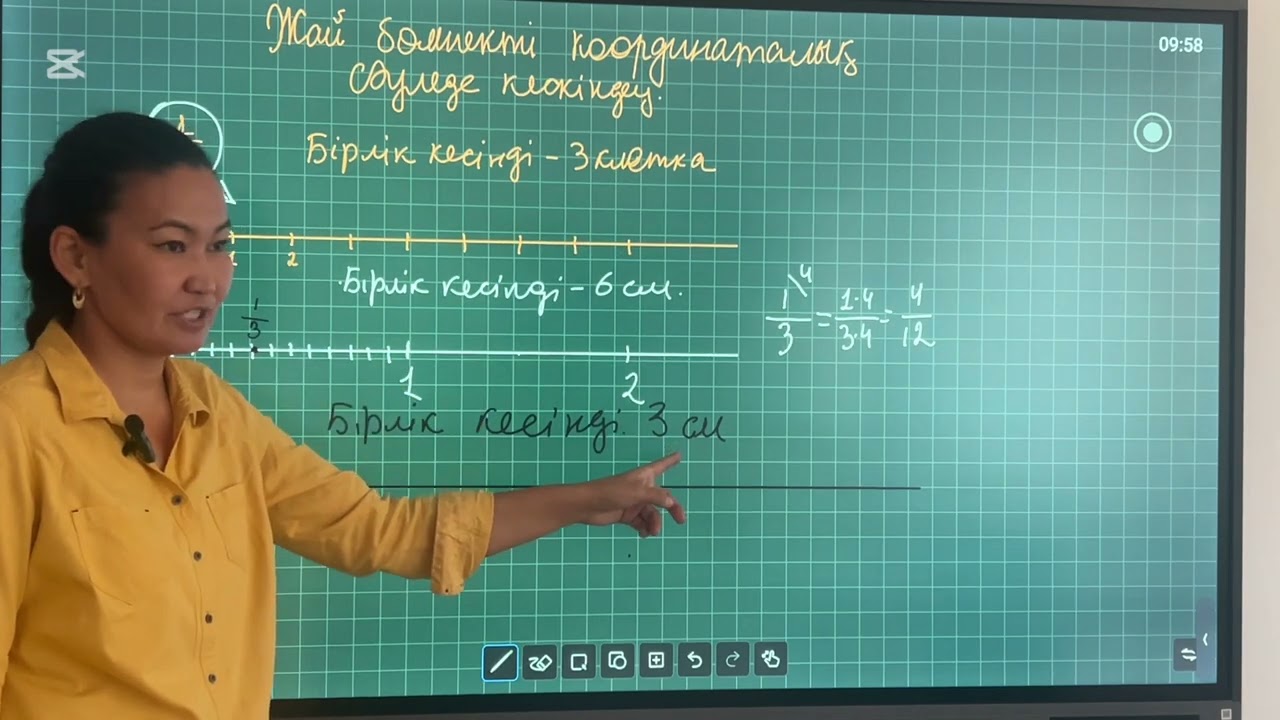 09:58
Жай бөлшекті координаталық
сәуледе кескіндеу.
Бірлік кесінді – 3 клетка
1 2
Бірлік кесінді – 6 см.
1/3
1 2
1/3 \4 = 1·4/3·4 = 4/12
Бірлік кесінді: 3 см